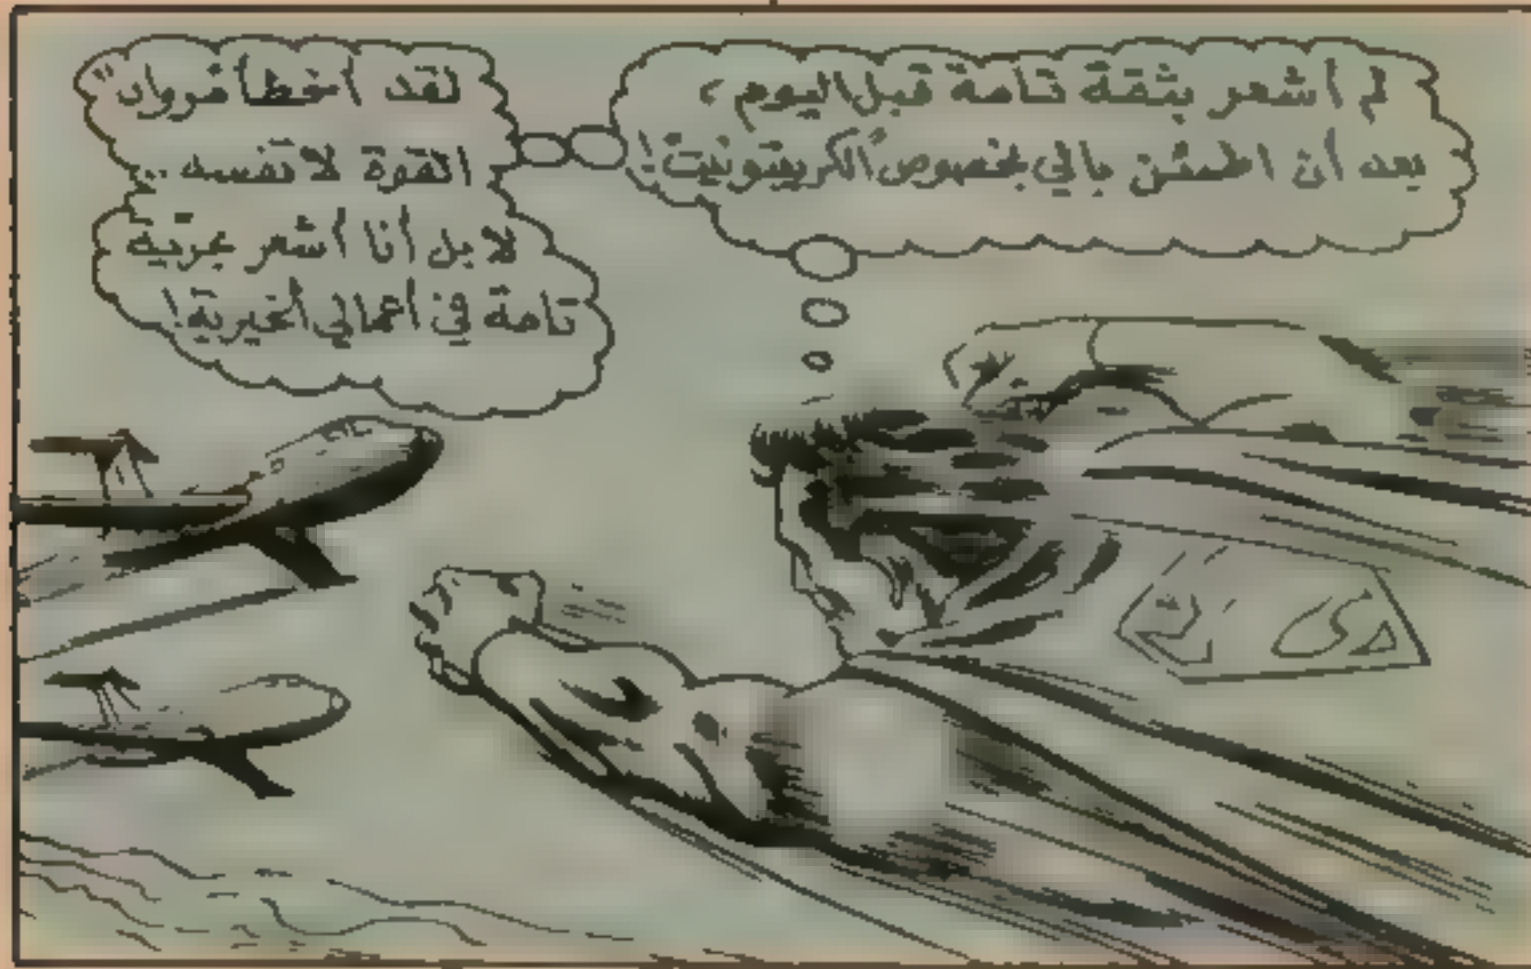 لم أشعر بثقة تامة قبل اليوم ،
بعد أن اطمئن بالي بخصوص "الكريبتونيت"!
لقد أخطأ مروان"
القوة لا تفسد ..
لا بل أنا أشعر بحرية
تامة في أعمالي الخيرية!